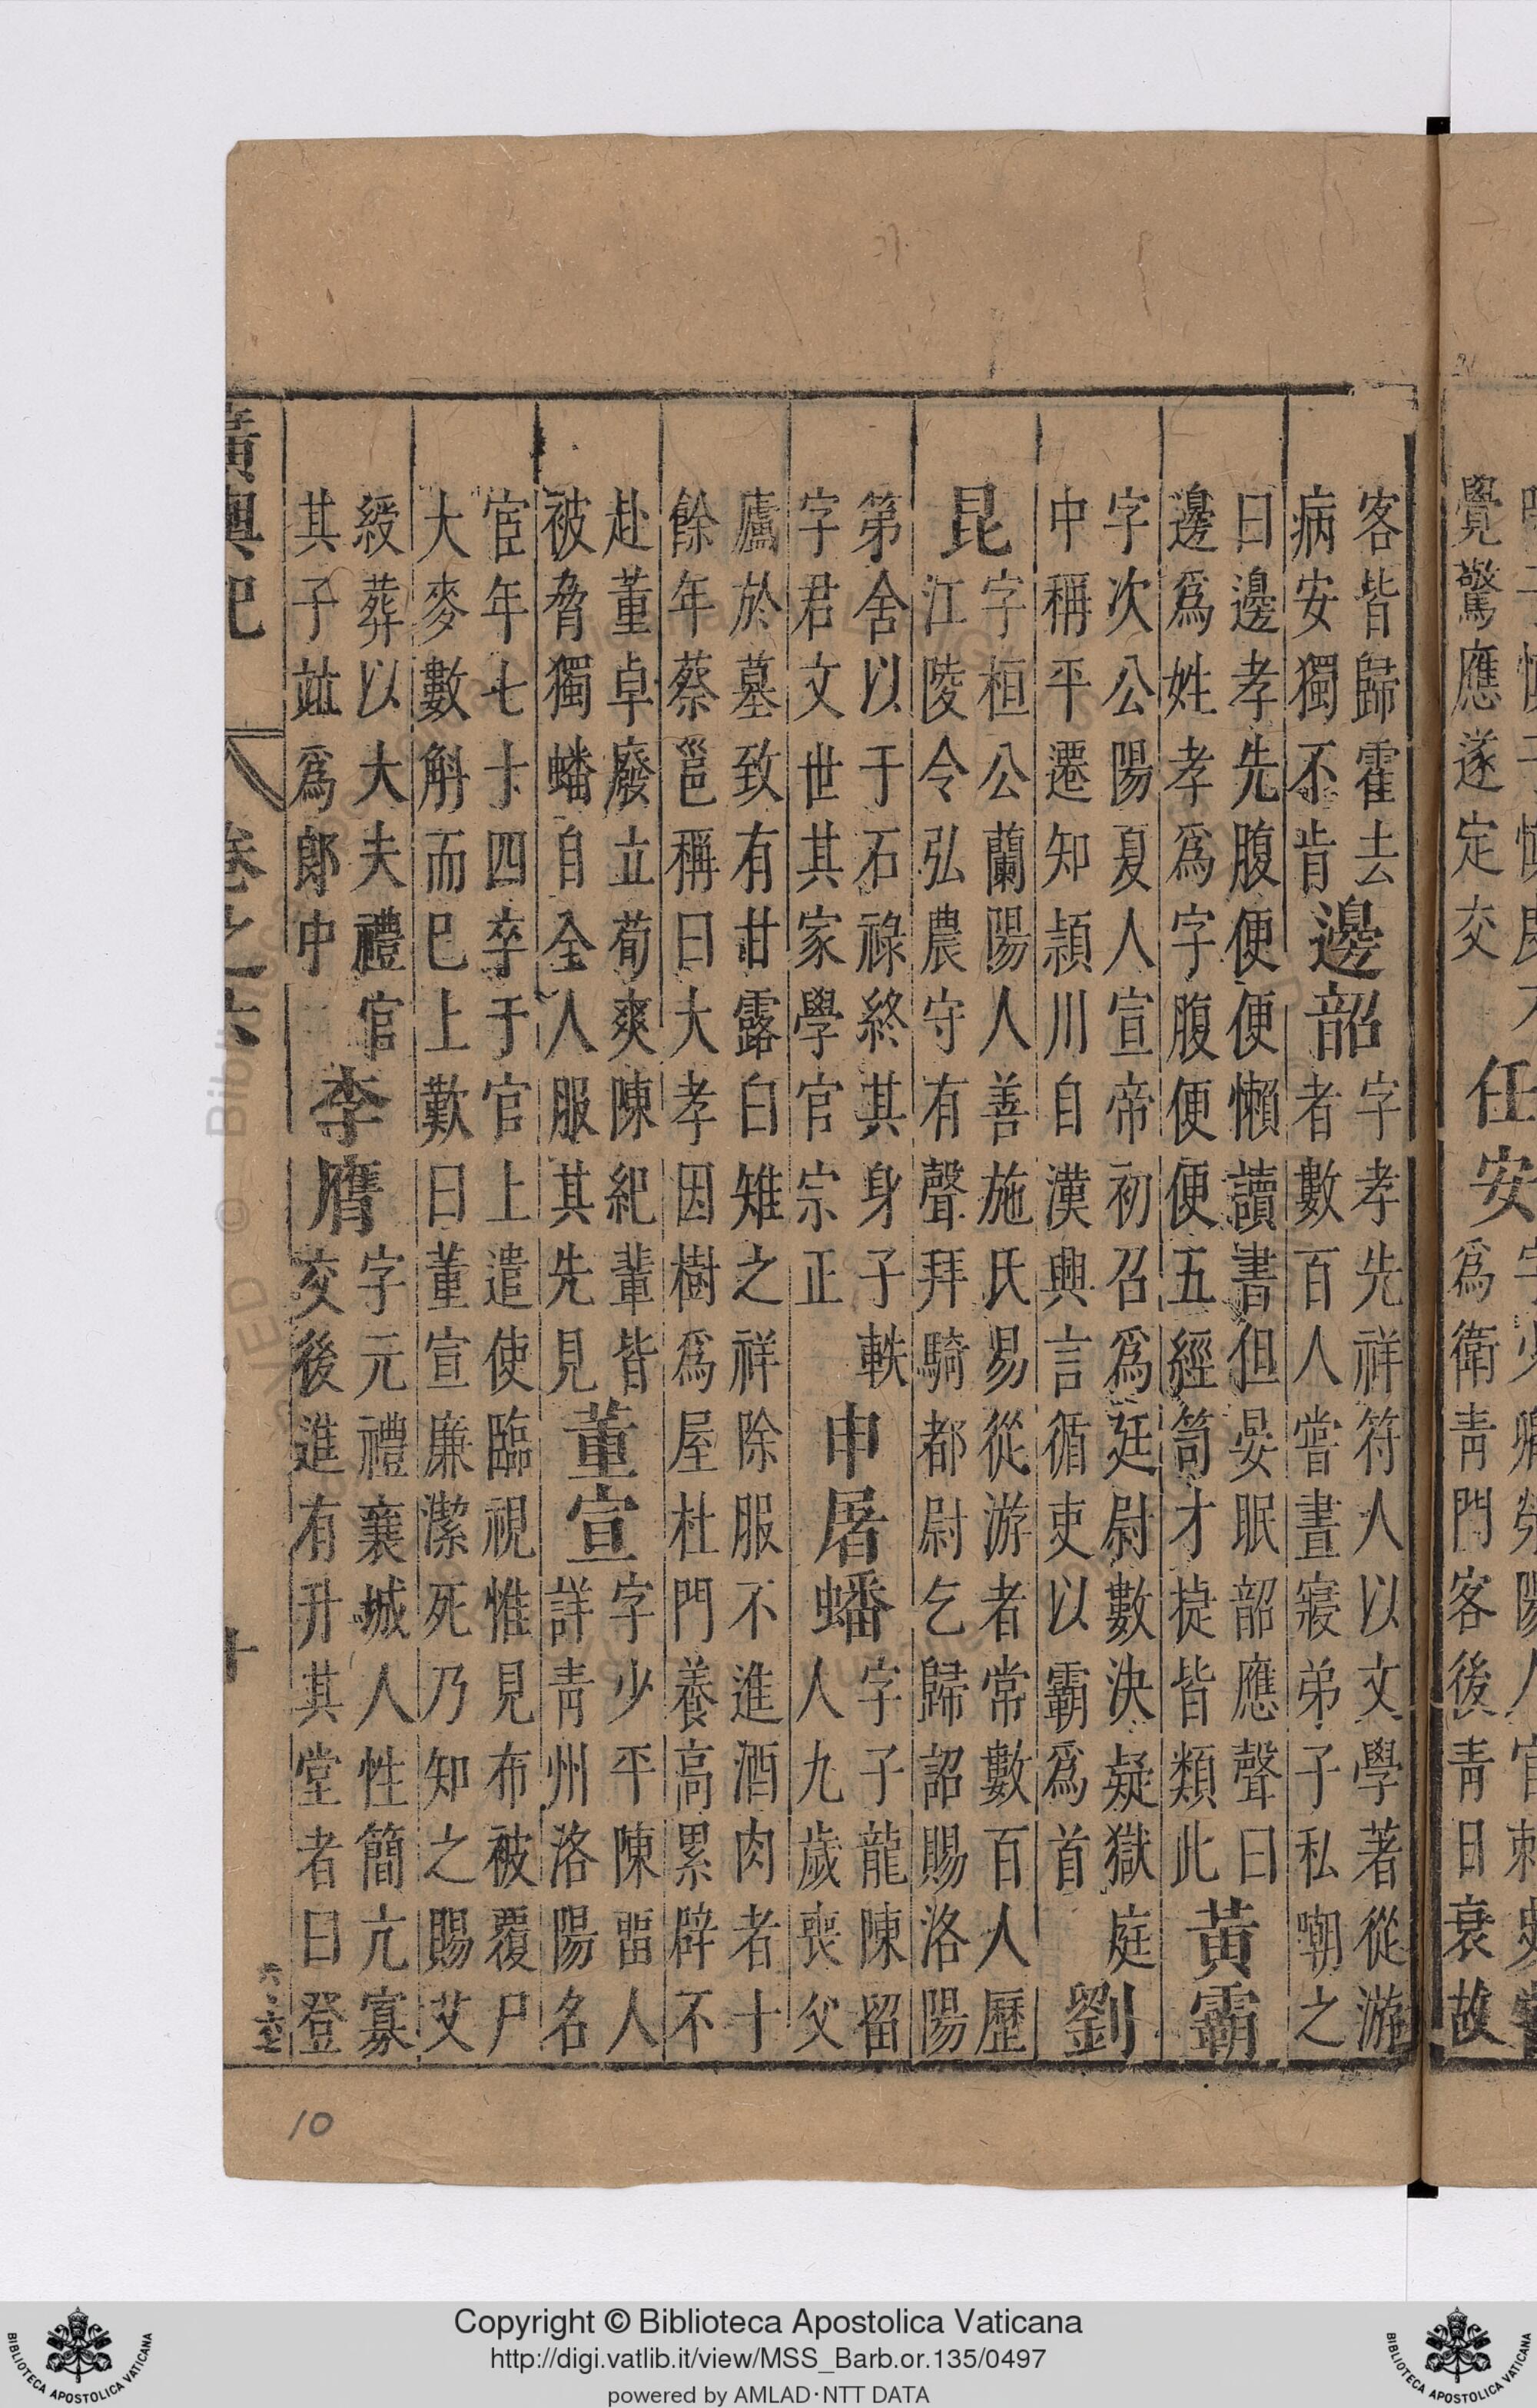 覺驚應遂定交
任安
爲衛青門客後青日衰故
客皆歸霍去
病安獨不肯
邊韶
字孝先祥符人以文學著從游
者數百人嘗晝寢弟子私嘲之
曰邊孝先腹便便懶讀書但晏眠韶應聲曰
邊爲姓孝爲字腹便便五經笥才捷皆類此
黃霸
字次公陽夏人宣帝初召爲廷尉數決疑獄庭
中稱平遷知潁川自漢興言循吏以霸爲首
劉
昆
字桓公蘭陽人善施氏易從游者常數百人歷
江陵令弘農守有聲拜騎都尉乞歸詔賜洛陽
第舍以于石祿終其身子軼
字君文世其家學官宗正
申屠蟠
字子龍陳留
人九歲喪父
廬於墓致有甘露白雉之祥除服不進酒肉者十
餘年蔡邕稱曰大孝因樹爲屋杜門養高累辟不
赴董卓廢立荀爽陳紀輩皆
被脅獨蟠自全人服其先見
董宣
字少平陳畱人
詳青州洛陽名
宦年七十四卒于官上遣使臨視惟見布被覆尸
大麥數斛而已上歎曰董宣廉潔死乃知之賜艾
綬葬以大夫禮官
其子竝爲郎中
李膺
字元禮襄城人性簡亢寡
交後進有升其堂者曰登
廣輿記
卷之六
十
10
Copyright © Biblioteca Apostolica Vaticana
http://digi.vatlib.it/view/MSS_Barb.or.135/0497
powered by AMLAD·NTT DATA
BIBLIOTECA APOSTOLICA VATICANA
BIBLIOTECA APOSTOLICA VATICANA